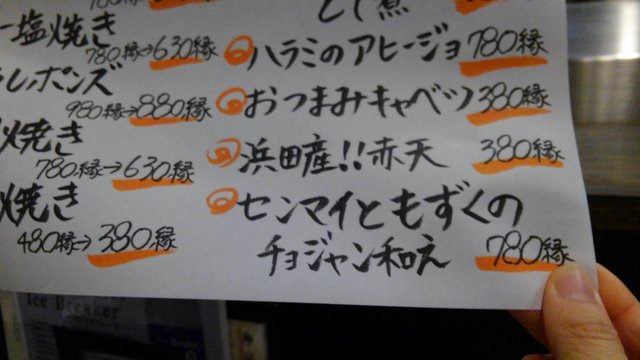 塩焼き
780縁→630縁
レポンズ
980縁→880縁
焼き
780縁→630縁
焼き
480縁→380縁
ハラミのアヒージョ 780縁
おつまみキャベツ 380縁
浜田産!!赤天 380縁
センマイともずくの
チョジャン和え 780縁
Ice Breaker